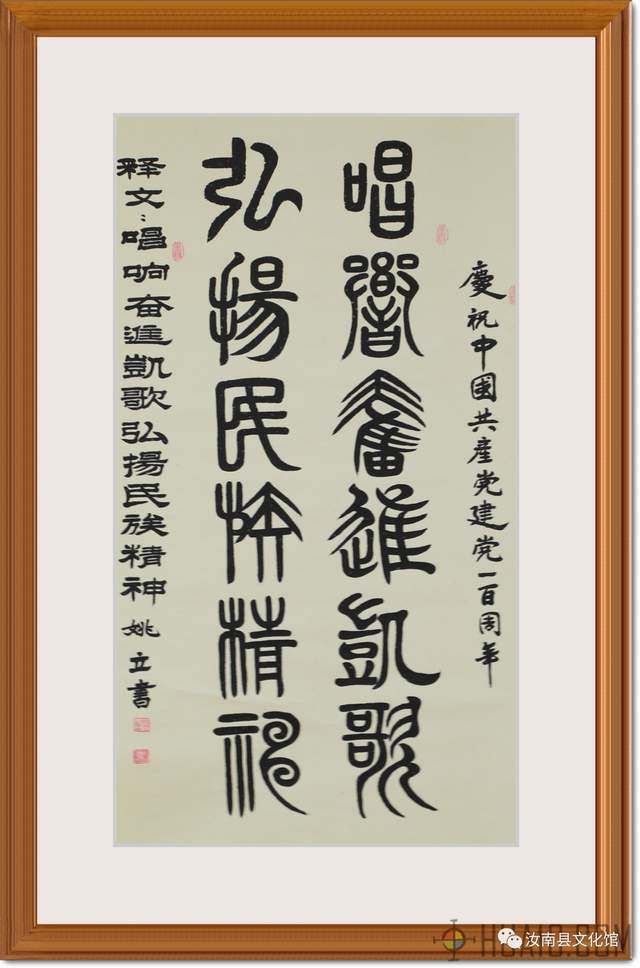 慶祝中國共產党建党一百周年
唱響奮進凱歌
弘揚民族精神
释文：唱响奋進凱歌弘揚民族精神 姚立書
汝南县文化馆